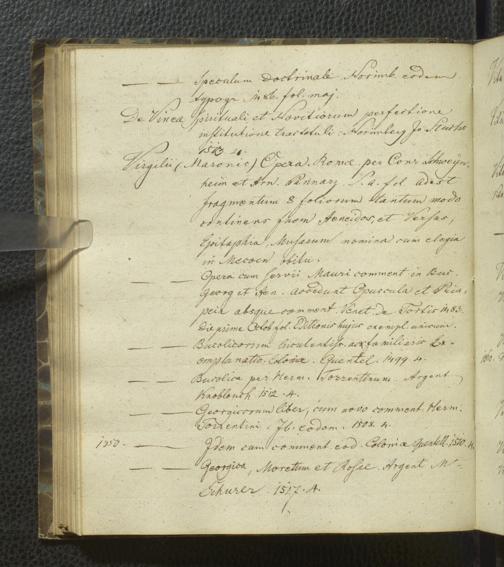 Speculum Doctrinale Norimb. eodem
typogr. in L. fol. maj.
De Vinea Spirituali et Novitiorum perfectione
institutione tractatuli. Nornberg Jo
1513 4.
Virgilii (Maronis) Opera. Romæ per Conr. Schweyn-
heim et Arn. Pannarz. S. a. fol. adest
fragmentum 8 foliorum tantum modo
continens finem Aeneidos, et Versus,
Epitaphia, Musarum nomina cum elogia
in Mecoen
Opera cum Servii Mauri comment in Buc.
Georg et Aen. accedunt Opuscula et Pria-
peia absque comment. Venet. de Tortis 1483.
Die prime Octob fol. Editionis hujus exempl. unicum.
Bucolicorum ac familiaris Ex-
emplanatio. Coloniæ. Quentel 1499 4.
Bucolica per Herm. Torrentinum. Argent
Knoblouch 1512. 4.
Georgicorum liber, cum novo comment. Herm.
Torrentini. Ib. eodem. 1508. 4.
1250. Idem cum comment. eod. Coloniæ 1510. 4.
Georgica, Moretum et Rosae. Argent M.
Schurer. 1517. 4.